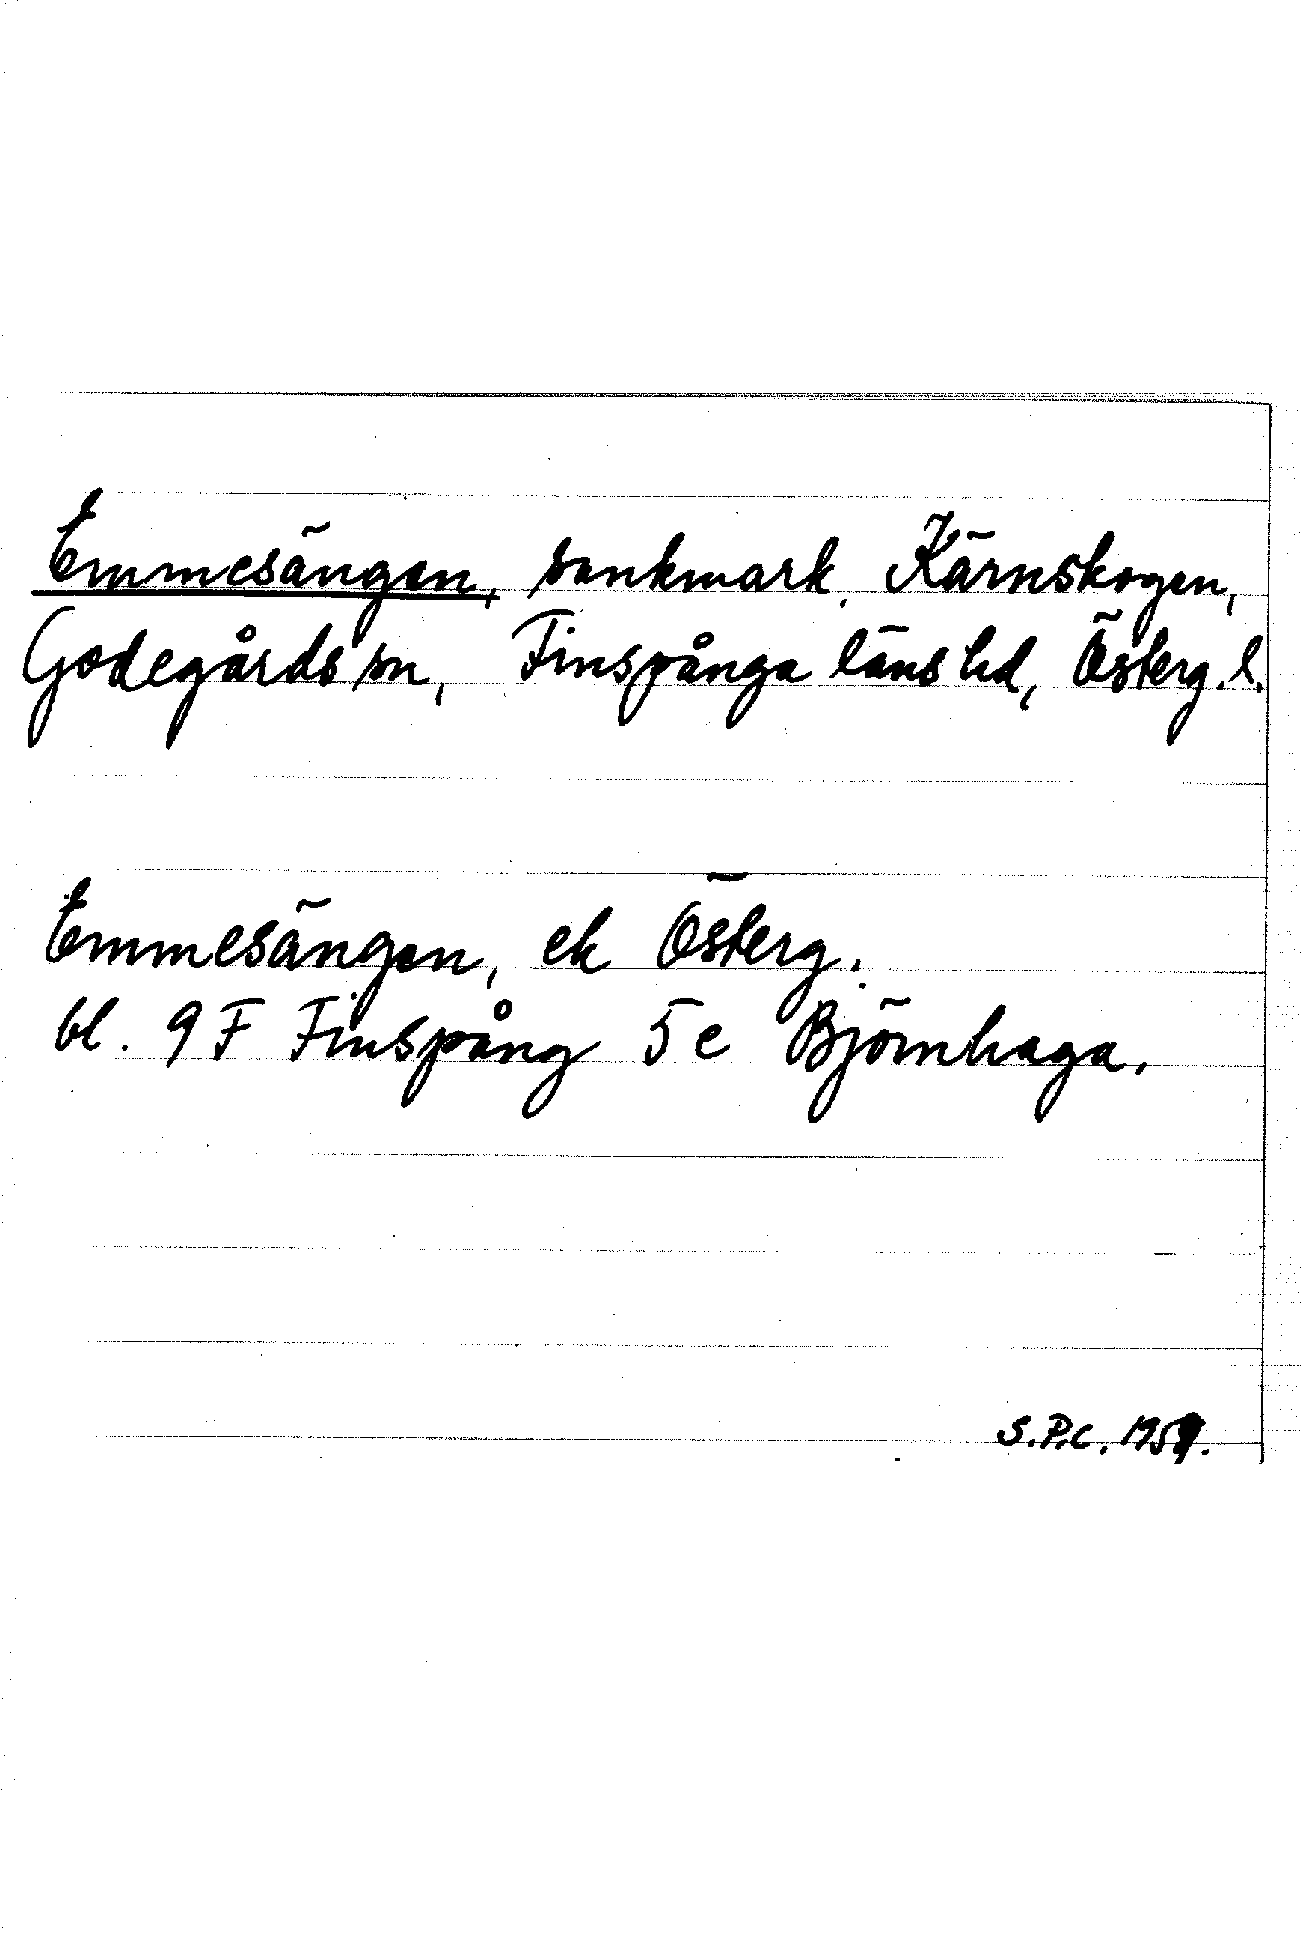 Emmesängen, sankmark, Kärnskogen,
Godegårds sn, Finspånga läns hd, Österg. l.
Emmesängen, ek Österg.
bl. 9 F Finspång 5 e Björnhaga.
S.P.C.